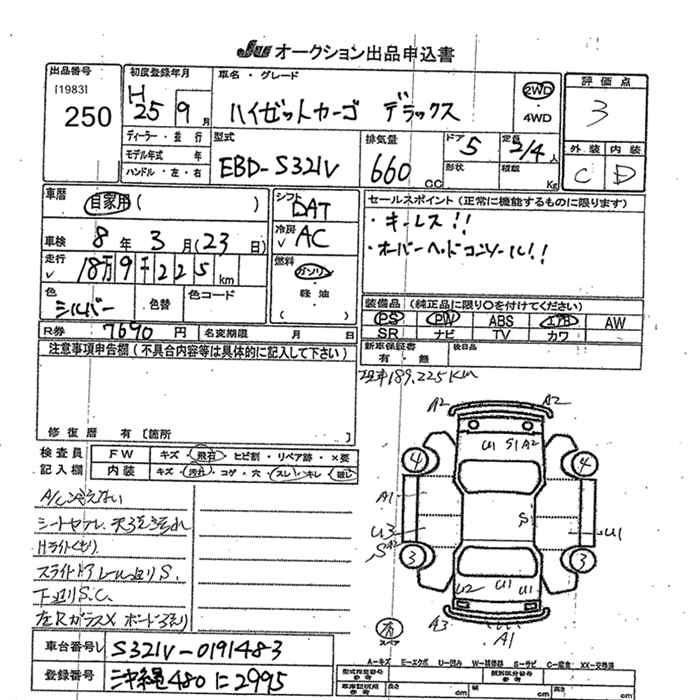 JU オークション出品申込書
出品番号
[1983]
250
初度登録年月
H25 9月
車名・グレード
ハイゼットカーゴ デラックス
2WD
・
4WD
評価点
3
外装 内装
C D
ディーラー・並行
モデル年式 年
ハンドル・左・右
型式
EBD-S321V
排気量
660 CC
ドア 5
形状
定員 2/4人
積載 Kg
車歴
自家用 ( )
車検 8年 3月(23日)
走行 18万9千225km
色
シルバー
色替
色コード
R券 7690円 名変期限 月 日
シフト
DAT
冷房
AC
燃料
ガソリン
・
軽油
( )
セールスポイント(正常に機能するものに限ります)
・キーレス!!
・オーバーヘッドコンソール!!
装備品(純正品に限り○を付けてください)
PS PW ABS エアB AW
SR ナビ TV カワ
新車保証書
有・無
後日品
現車189,225km
注意事項申告欄(不具合内容等は具体的に記入して下さい)
修復歴 有[箇所 ]
検査員
記入欄
FW キズ・飛石・ヒビ割・リペア跡・×要
内装 キズ・汚れ・コゲ・穴・スレ・キレ・破レ
A/C冷えない
Hライトくもり
下廻りS.C
A2 A2
U1 S1 A2
4 4
A1
S
U3 U1
S A2
3 3
U2 U1 U1
A3 A1
右
A-キズ E-エクボ U-凹み W-補修跡 S-サビ C-腐食 XX-交換済
車台番号 S321V-0191483
登録番号 沖縄480に2995
型式指定番号
参考
類別区分番号
参考
車庫証明用
参考
長さ cm
幅 cm
高さ cm